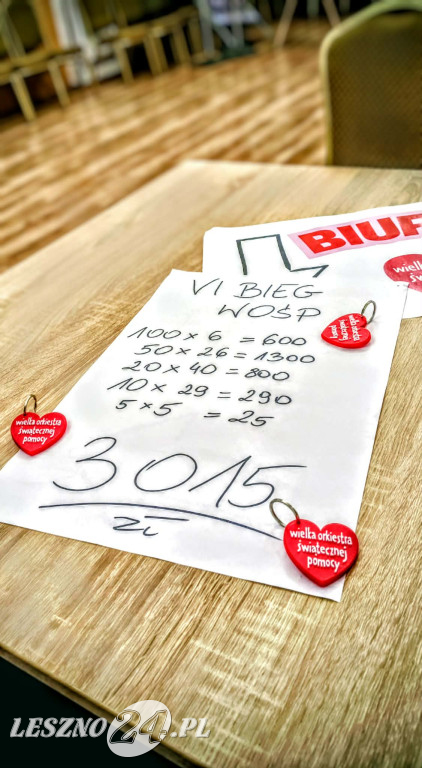 BIUF
wielka
św
VI BIEG
WOŚP
100 × 6 = 600
50 × 26 = 1300
20 × 40 = 800
10 × 29 = 290
5 × 5 = 25
3015
zł
wielka orkiestra
świątecznej
pomocy
wielka orkiestra
świątecznej
pomocy
wielka orkiestra
świątecznej
pomocy
LESZNO24.PL